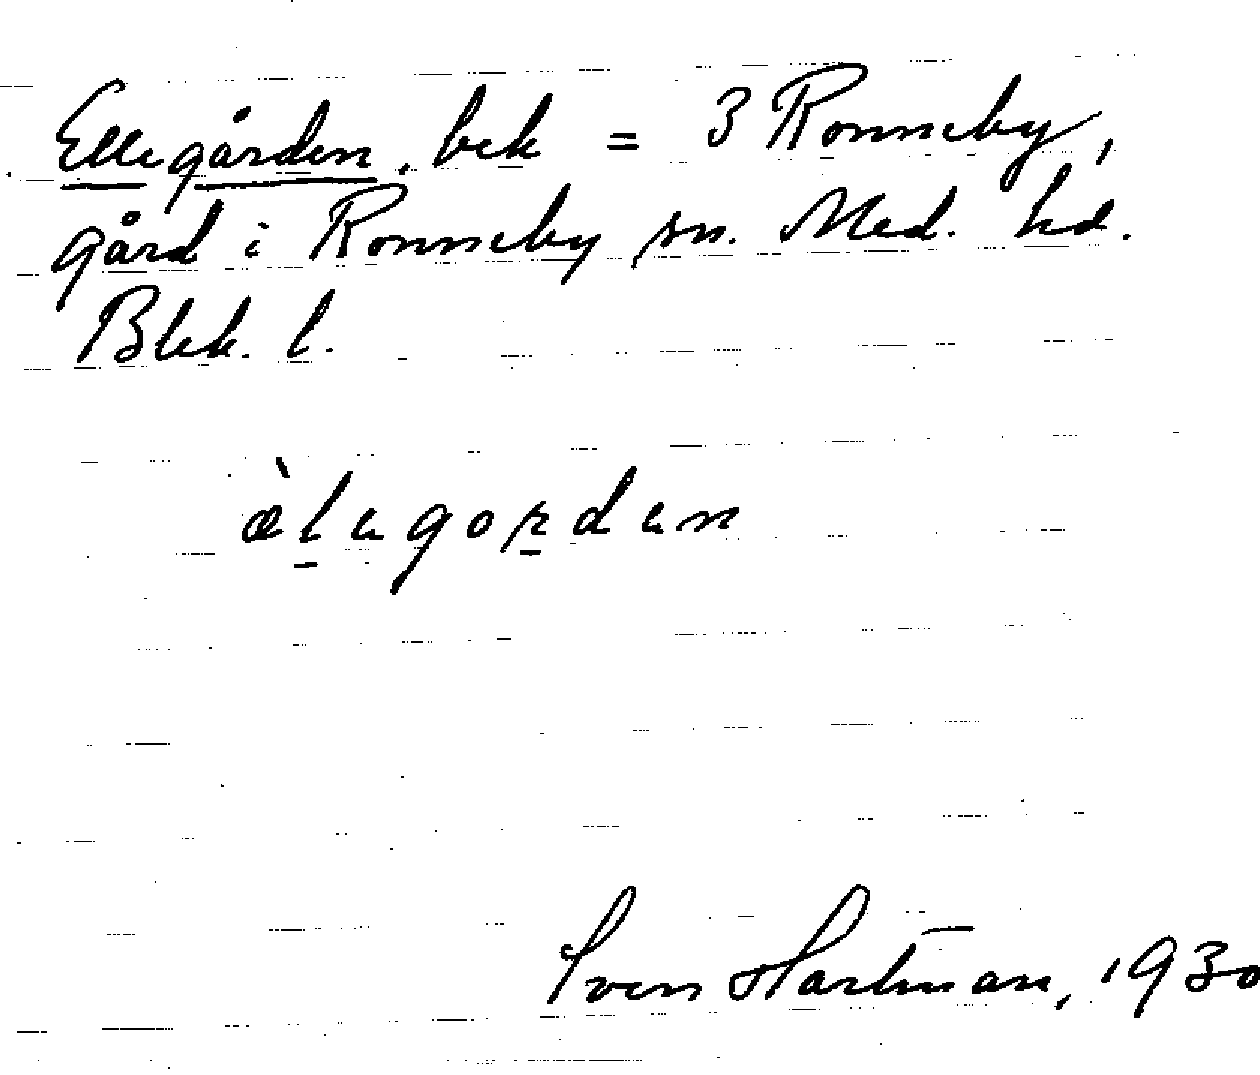 Ellegården, bek = 3 Ronneby,
gård i Ronneby sn. Med. hd.
Blek. l.
æ̀l̠egor̠den
Sven Hartman, 1930